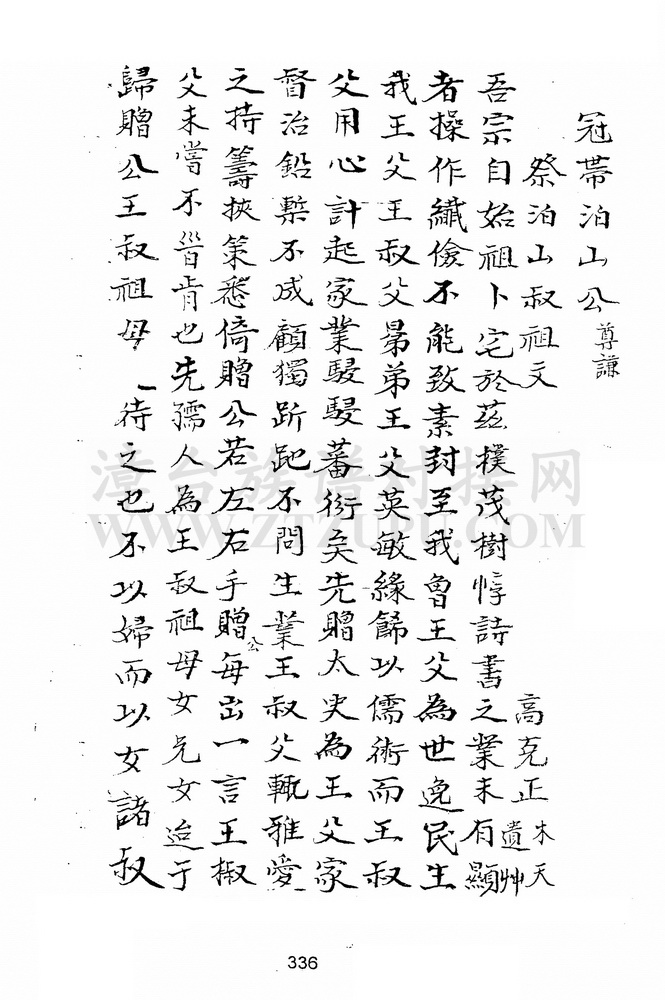 冠帶泊山公尊謙
祭泊山叔祖文 高克正木天遺艸
吾宗自始祖卜宅於茲樸茂樹惇詩書之業未有顯
者操作纖儉不能致素封至我曾王父為世逸民生
我王父王叔父晜弟王父英敏緣餙以儒術而王叔
父用心計起家業駸駸蕃衍矣先贈太史為王父家
督治鉛槧不成顧獨跅跑不問生業王叔父輒雅愛
之持籌挾策悉倚贈公若左右手贈公每出一言王椒
父未嘗不首肯也先孺人為王叔祖母女兄女迨于
歸贈公王叔祖母一待之也不以婦而以女諸叔
漳台族谱对接网
WWW.ZTZUPU.COM
336